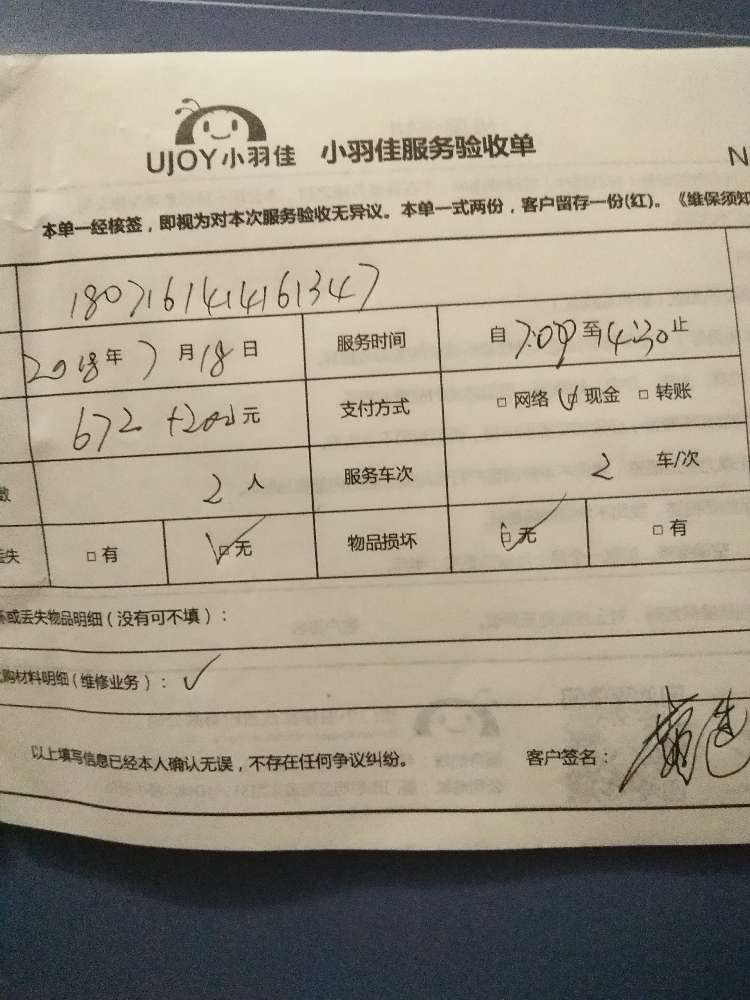 UJOY小羽佳 小羽佳服务验收单
N
本单一经核签，即视为对本次服务验收无异议。本单一式两份，客户留存一份(红)。《维保须知
1807161414161347
2018年7月18日 服务时间 自7:00至14:30止
672+200元 支付方式 □网络 ☑现金 □转账
数 2人 服务车次 2车/次
丢失 □有 ☑无 物品损坏 ☑无 □有
坏或丢失物品明细（没有可不填）：
购材料明细（维修业务）：✓
以上填写信息已经本人确认无误，不存在任何争议纠纷。 客户签名：